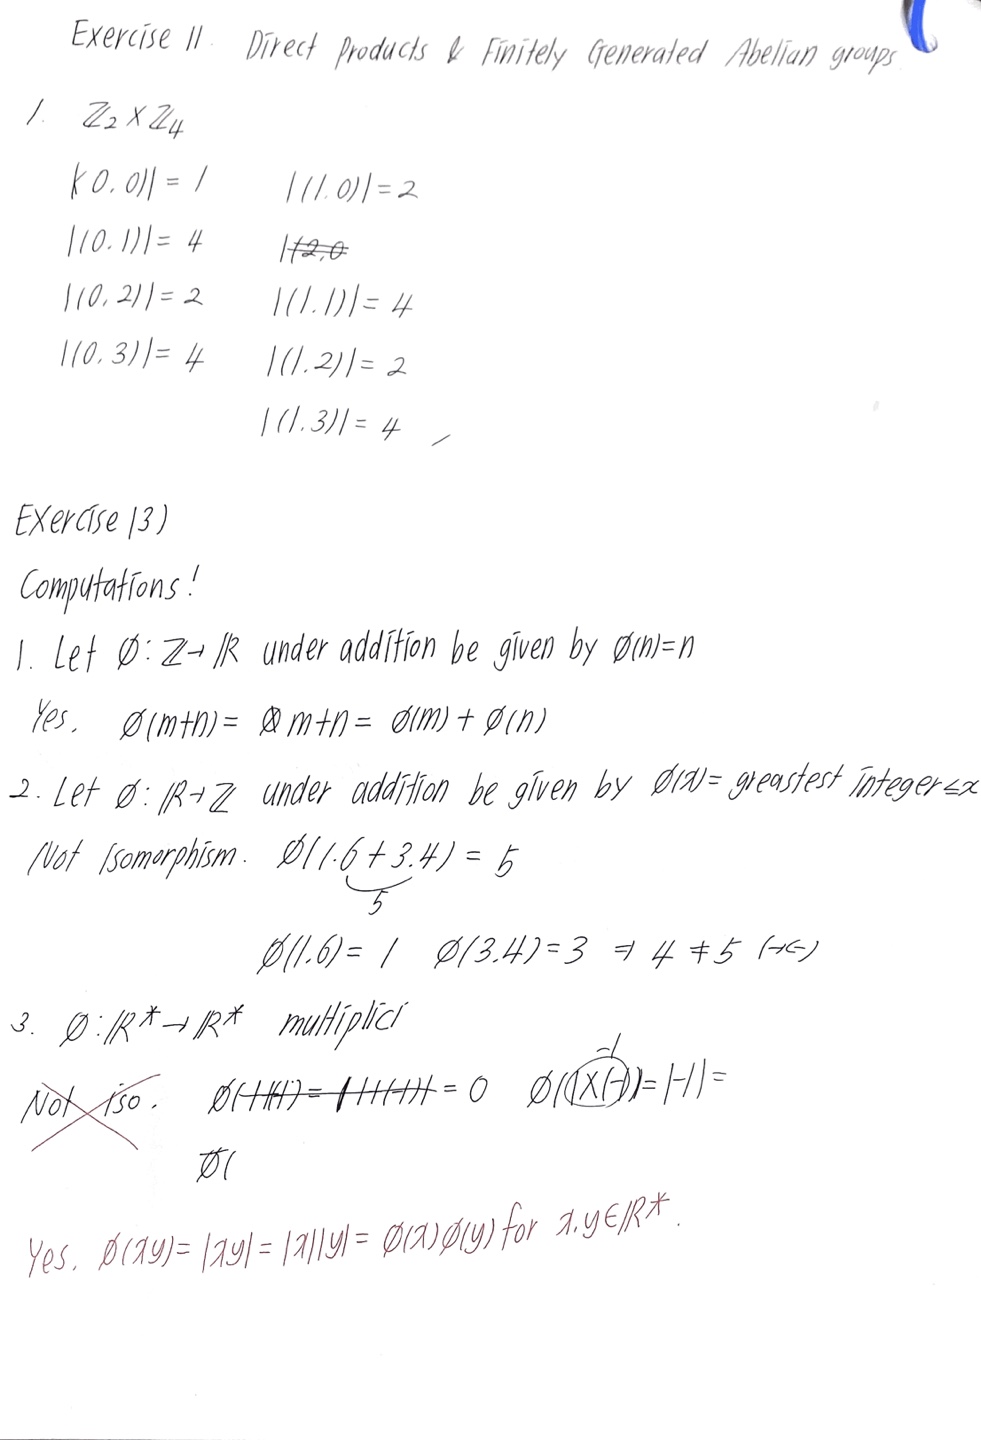 Exercise 11. Direct Products & Finitely Generated Abelian groups
1. ℤ₂ × ℤ₄
|(0.0)| = 1 |(1.0)| = 2
|(0.1)| = 4 |(2,0
|(0,2)| = 2 |(1.1)| = 4
|(0.3)| = 4 |(1.2)| = 2
|(1.3)| = 4
Exercise 13)
Computations!
1. Let ø: ℤ→ℝ under addition be given by ø(n)=n
Yes. ø(m+n) = m+n = ø(m) + ø(n)
2. Let ø: ℝ→ℤ under addition be given by ø(x) = greastest integer ≤x
Not Isomorphism. ø(1.6+3.4) = 5
5
ø(1.6) = 1 ø(3.4)=3 ⇒ 4 ≠ 5 (→←)
3. ø: ℝ* → ℝ* multiplici
-1
Not iso. = 0 ø(1×(-1)) = |-1| =
ø(
Yes. ø(xy) = |xy| = |x||y| = ø(x)ø(y) for x.y∈ℝ*.